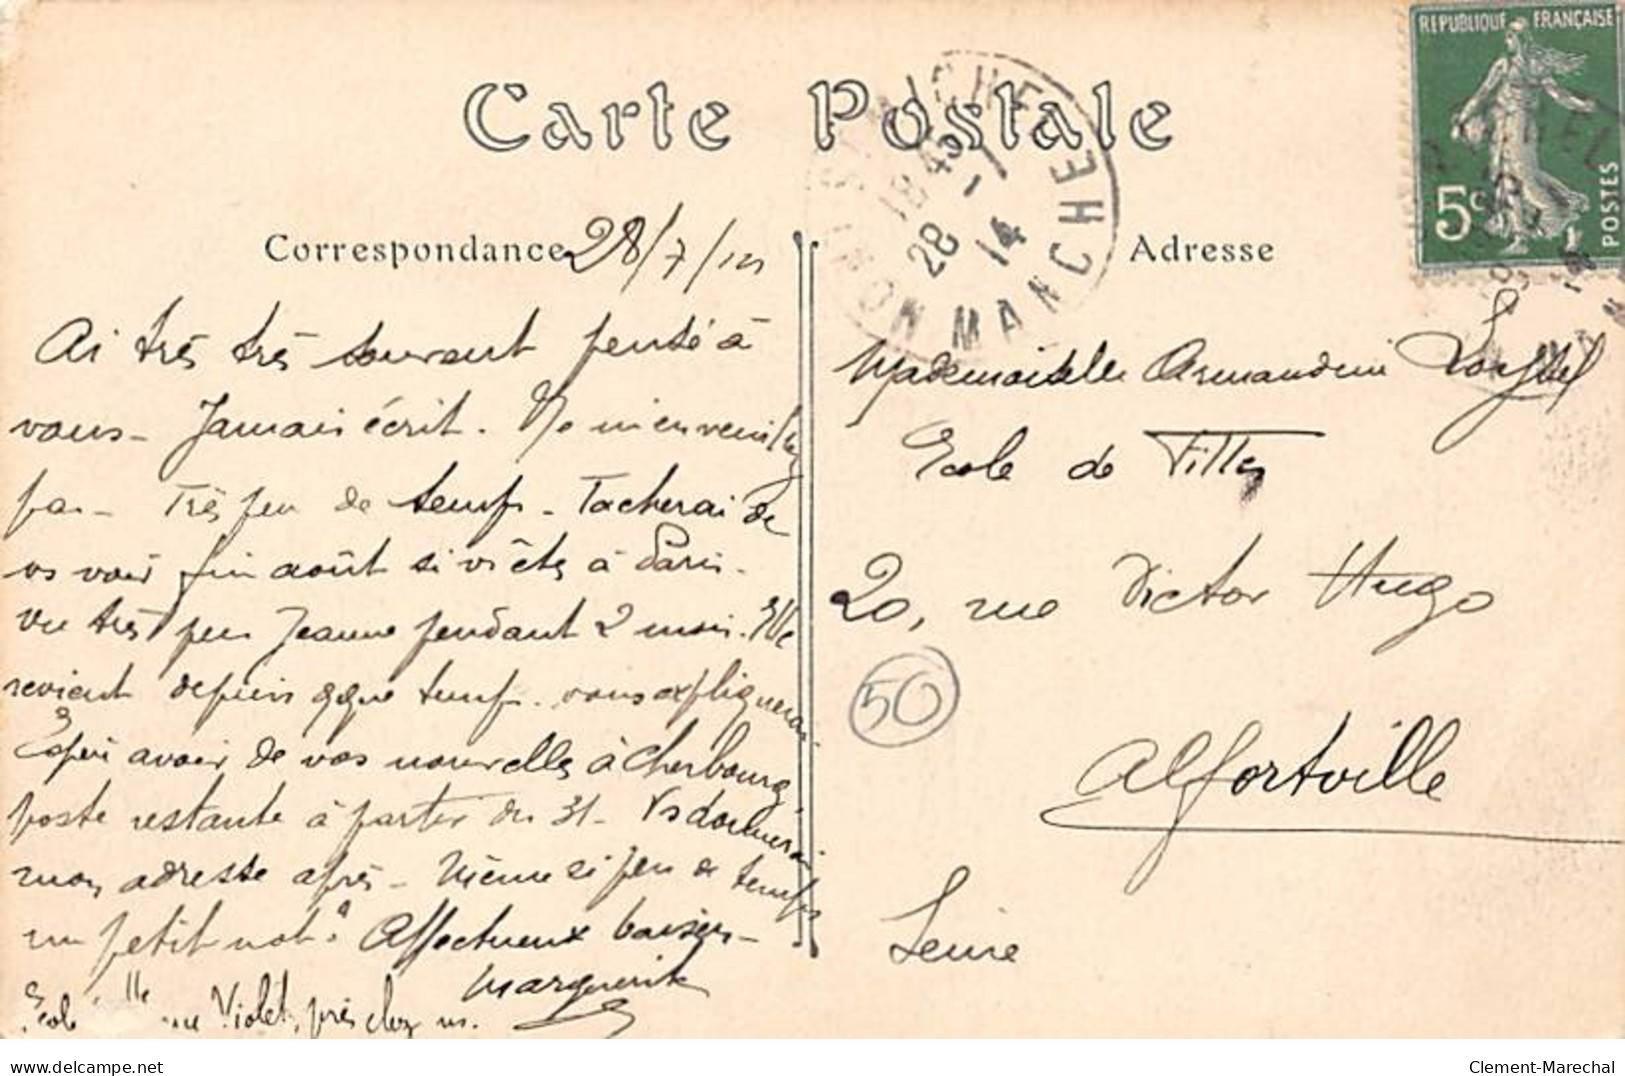 Carte Postale
Correspondance
28/7/14
Ai très très souvent pensé à
vous - Jamais écrit. Ne m'en veuillez
pas - Très peu de temps - Tacherai de
vs voir fin août si vs êtes à Paris -
vu très peu Jeanne pendant 2 mois. Elle
revient depuis qque temps. vous expliquerai
Espère avoir de vos nouvelles à Cherbourg
poste restante à partir du 31 - Vs donnerai
mon adresse après - Même si peu de temps
un petit mot. Affectueux baisers -
Marguerite
Violet, près chez ns.
Adresse
Mademoiselle Armandine
Ecole de Filles
20, rue Victor Hugo
Alfortville
Seine
50
REPUBLIQUE FRANÇAISE
5c
POSTES
MONT ST MICHEL
18 45
28 - 7
14
MANCHE
delcampe.net
Clement-Marechal